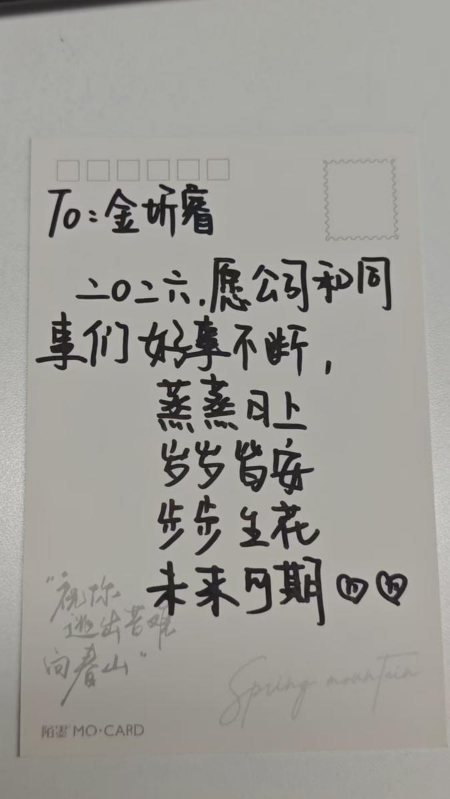 To:金圻睿
二〇二六,愿公司和同
事们好事不断,
蒸蒸日上
岁岁皆安
步步生花
未来可期♡♡
"祝你
逃出苦难
向春山"
Spring mountain
陌雲 MO·CARD